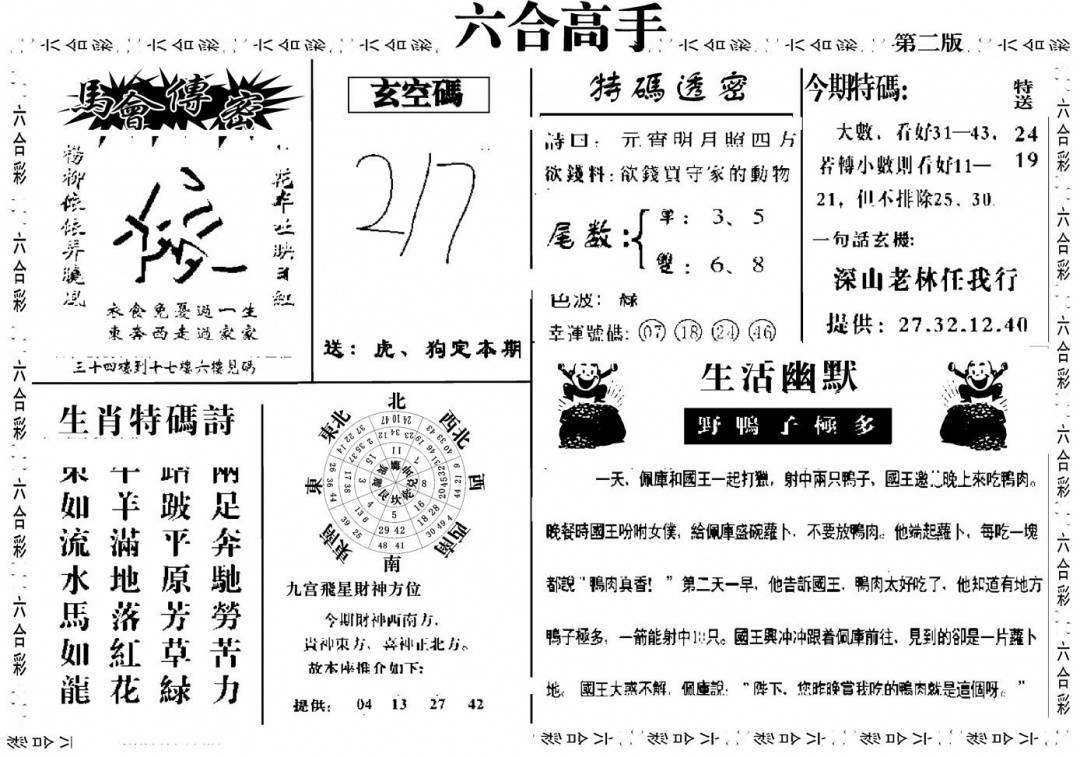 六合高手
第二版
六合彩
馬會傳密
楊柳依依弄曉風
衣食免憂過一生
東奔西走過家家
三十四樓到十七樓六樓見碼
玄空碼
217
送：虎、狗定本期
特碼透密
詩曰：元宵明月照四方
欲錢料：欲錢買守家的動物
尾数：
單：3、5
雙：6、8
色波：綠
幸運號碼：07 18 24 46
今期特碼：
特送
24
19
大數，看好31—43，
若轉小數則看好11—
21，但不排除25、30.
一句話玄機：
深山老林任我行
提供：27.32.12.40
生肖特碼詩
兩足奔馳勞苦力
踏跛平原芳草緑
牛羊滿地落紅花
來如流水馬如龍
北
西北
西
西南
南
東南
東
東北
九宫飛星財神方位
今期財神西南方，
貴神東方，喜神正北方。
故本座推介如下：
提供：04 13 27 42
生活幽默
野鴨子極多
一天，佩庫和國王一起打獵，射中兩只鴨子，國王邀晚上來吃鴨肉。
晚餐時國王吩咐女僕，給佩庫盛碗蘿卜，不要放鴨肉。他端起蘿卜，每吃一塊
都説“鴨肉真香！”第二天一早，他告訴國王，鴨肉太好吃了，他知道有地方
鴨子極多，一箭能射中只。國王興冲冲跟着佩庫前往，見到的卻是一片蘿卜
地。國王大惑不解，佩庫說：”陛下，您昨晚嘗我吃的鴨肉就是這個呀。”